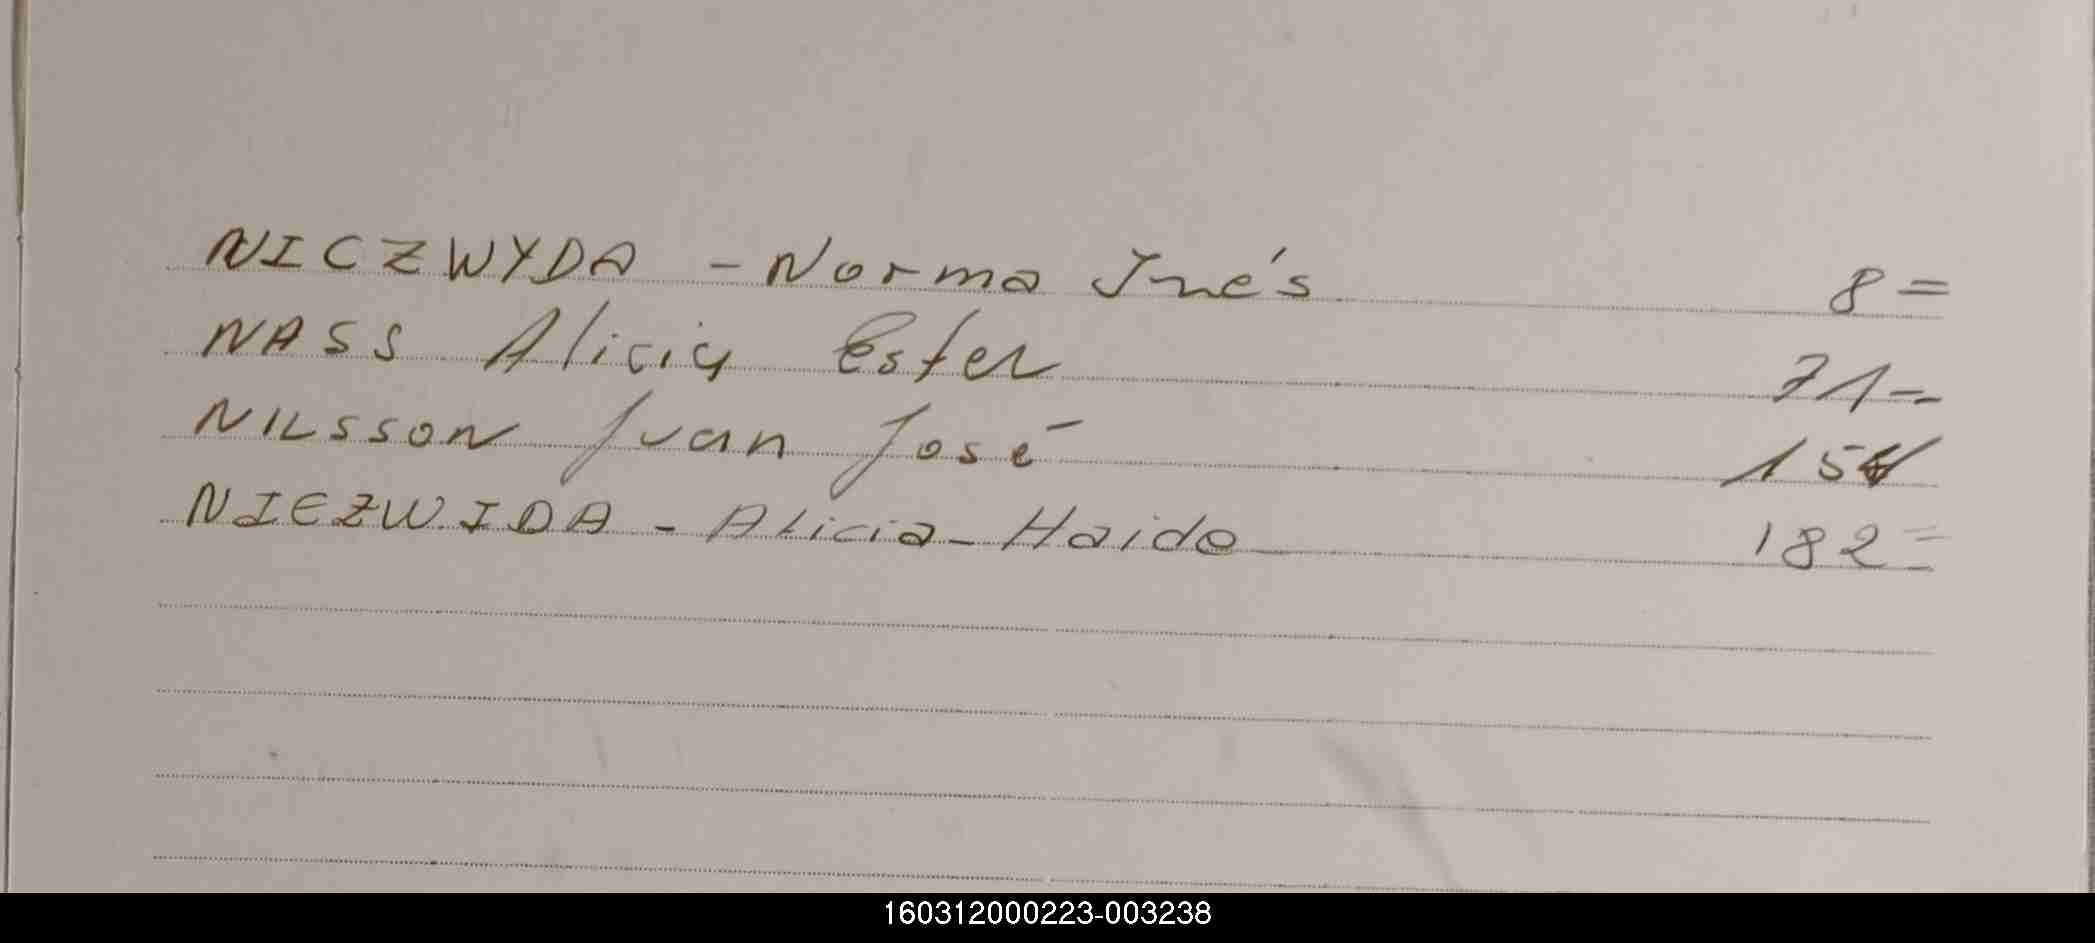 NICZWYDA - Norma Inés 8=
NASS Alicia Ester 71=
NILSSON Juan José
NIEZWIDA - Alicia - Haide 182=
160312000223-003238